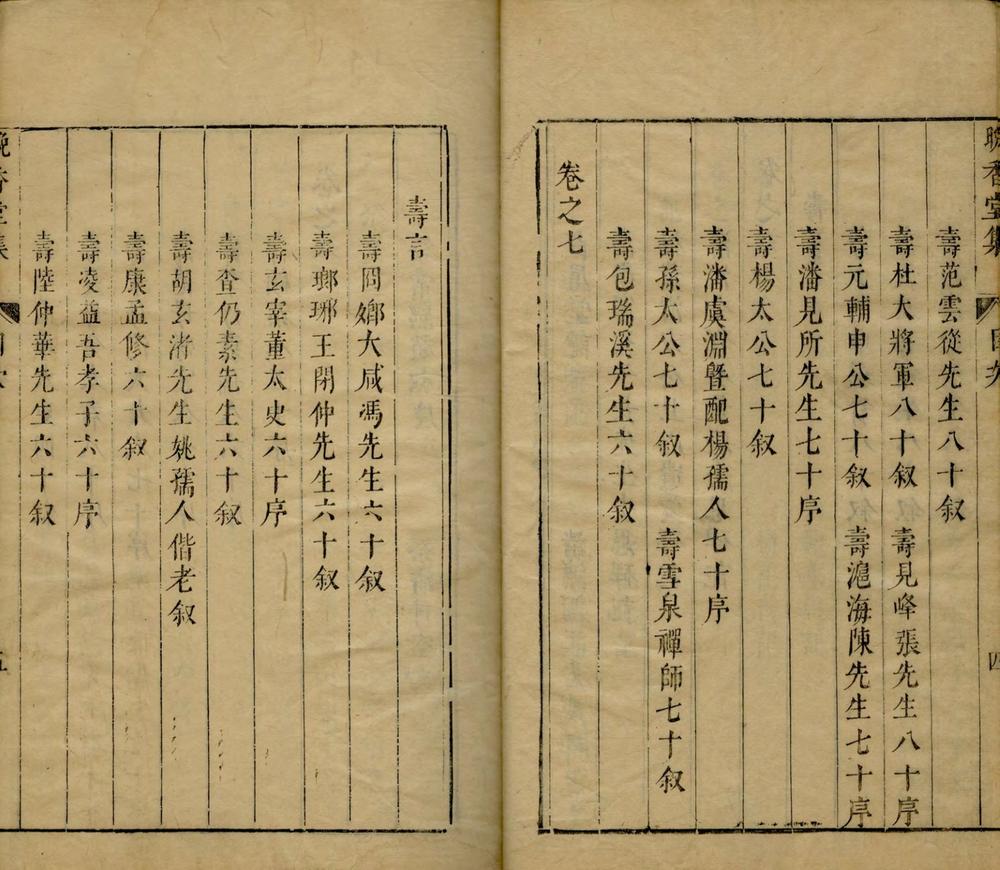 晚香堂集
目次
四
壽范雲從先生八十叙
壽杜大將軍八十叙　壽見峰張先生八十序
壽元輔申公七十叙　壽滬海陳先生七十序
壽潘見所先生七十序
壽楊太公七十叙
壽潘虞淵曁配楊孺人七十序
壽孫太公七十叙　壽雪泉禪師七十叙
壽包瑞溪先生六十叙
卷之七
壽言
壽冏卿大咸馮先生六十叙
壽瑯琊王閑仲先生六十叙
壽玄宰董太史六十序
壽查仍素先生六十叙
壽胡玄渚先生姚孺人偕老叙
壽康孟修六十叙
壽凌益吾孝子六十序
壽陸仲華先生六十叙
晚香堂集
目次
五